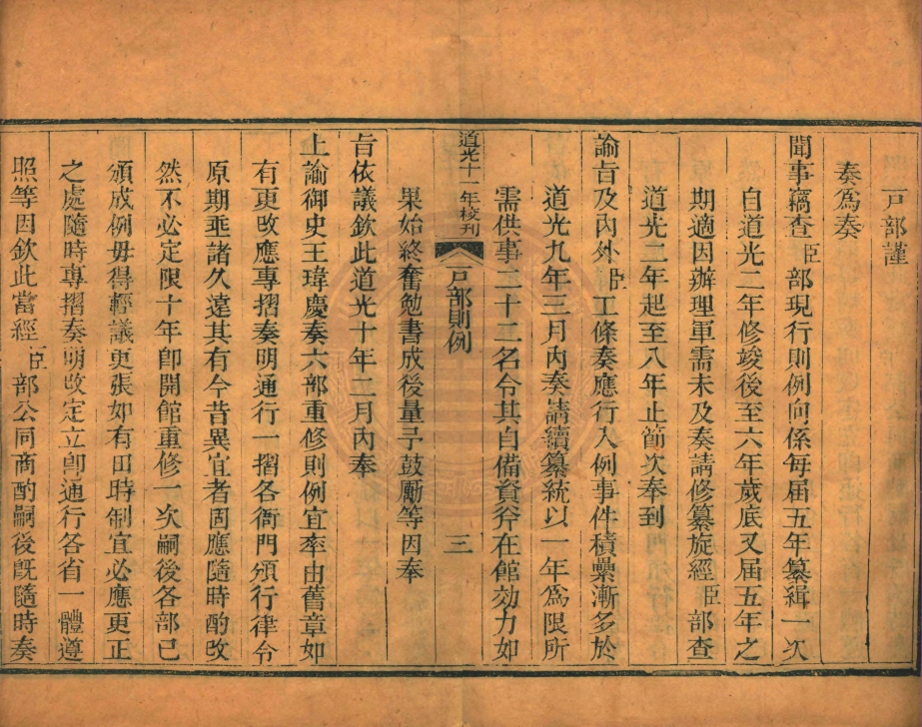 戶部謹
奏爲奏
聞事竊查臣部現行則例向係每届五年纂緝一次
自道光二年修竣後至六年歲底又届五年之
期適因辦理軍需未及奏請修纂旋經臣部查
道光二年起至八年止節次奉到
諭旨及內外臣工條奏應行入例事件積纍漸多於
道光九年三月內奏請續纂統以一年爲限所
需供事二十二名令其自備資斧在館効力如
道光十一年校刊 戶部則例 三
果始終奮勉書成後量予鼓勵等因奉
旨依議欽此道光十年二月內奉
上諭御史王瑋慶奏六部重修則例宜率由舊章如
有更改應專摺奏明通行一摺各衙門頒行律令
原期垂諸久遠其有今昔異宜者固應隨時酌改
然不必定限十年卽開館重修一次嗣後各部已
頒成例毋得輕議更張如有因時制宜必應更正
之處隨時專摺奏明改定立卽通行各省一體遵
照等因欽此當經臣部公同商酌嗣後旣隨時奏